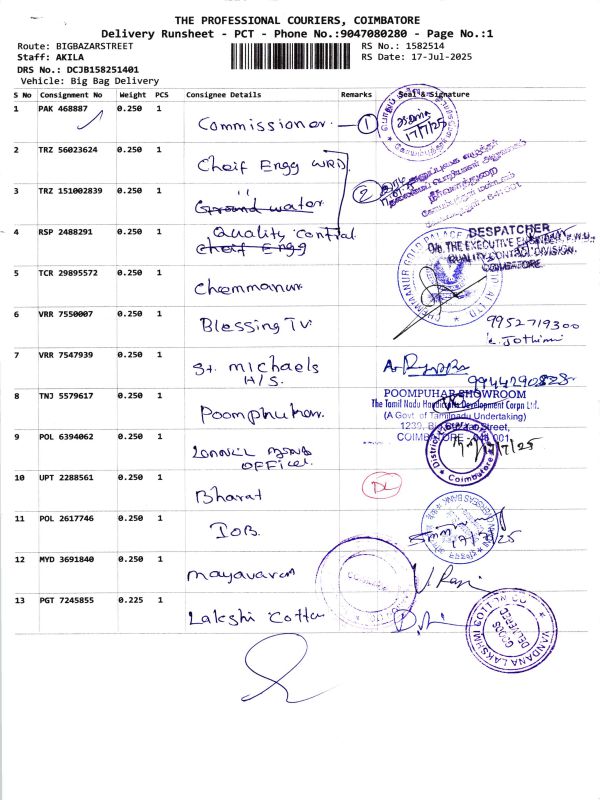 THE PROFESSIONAL COURIERS, COIMBATORE
Delivery Runsheet - PCT - Phone No.:9047080280 - Page No.:1
Route: BIGBAZARSTREET
RS No.: 1582514
Staff: AKILA
RS Date: 17-Jul-2025
DRS No.: DCJB158251401
Vehicle: Big Bag Delivery
S No Consignment No Weight PCS Consignee Details Remarks Seal & Signature
1 PAK 468887 0.250 1 Commissioner 1
17/7/25
2 TRZ 56023624 0.250 1 Cheif Engg WRD
3 TRZ 151002839 0.250 1 Ground water 2
4 RSP 2488291 0.250 1 Quality control
Cheif Engg
DESPATCHER
O/o. THE EXECUTIVE ENGINEER, P.W.D.,
QUALITY CONTROL DIVISION.
COIMBATORE.
5 TCR 29895572 0.250 1 Chemmanur
CHEMMANUR GOLD PALACE
6 VRR 7550007 0.250 1 Blessing Tv
9952719300
7 VRR 7547939 0.250 1 St. michaels
H/S.
9944290828
8 TNJ 5579617 0.250 1 Poomphuhar
POOMPUHAR SHOWROOM
The Tamil Nadu Handicrafts Development Corpn Ltd.
(A Govt. of Tamilnadu Undertaking)
1239, Big Bazaar Street,
COIMBATORE - 641 001
9 POL 6394062 0.250 1
Coimbatore
10 UPT 2288561 0.250 1 Bharat DL
11 POL 2617746 0.250 1 IOB
12 MYD 3691840 0.250 1 mayavaram
13 PGT 7245855 0.225 1 Lakshi Cotton
GOODS
DELIVERED